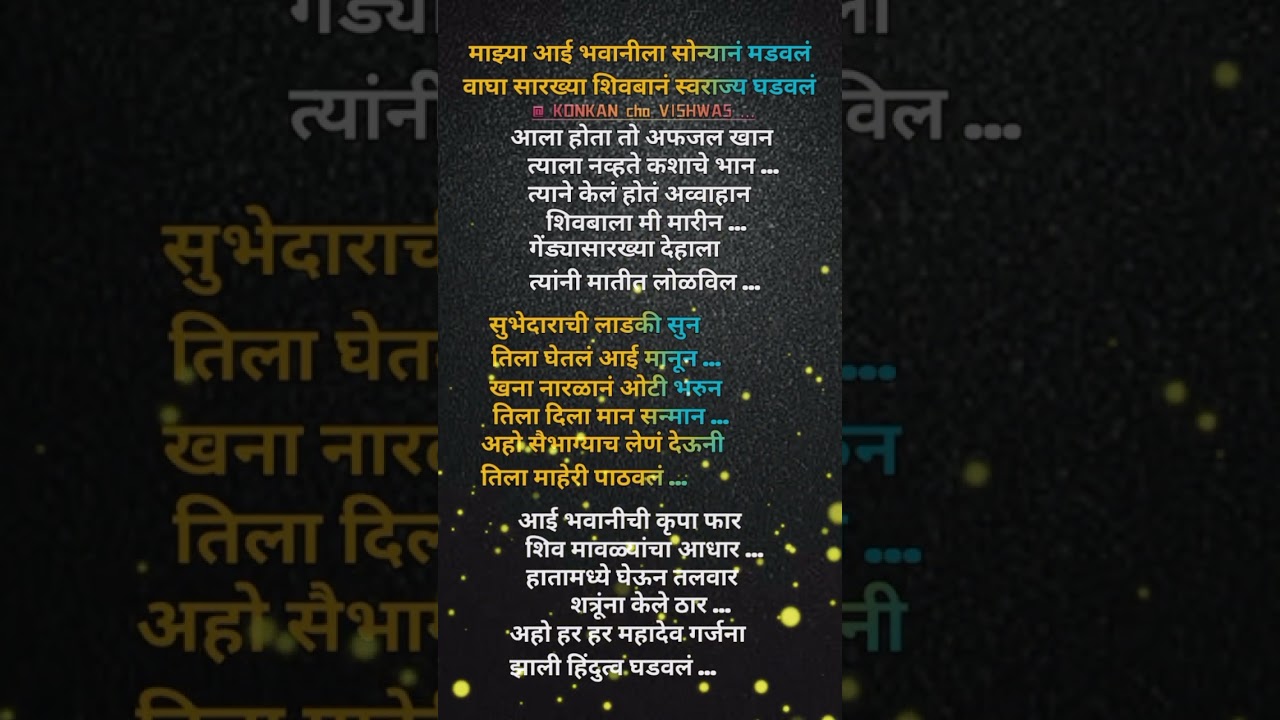 माझ्या आई भवानीला सोन्यानं मडवलं
वाघा सारख्या शिवबानं स्वराज्य घडवलं
@ KONKAN cha VISHWAS ...
आला होता तो अफजल खान
त्याला नव्हते कशाचे भान ...
त्याने केलं होतं अव्वाहान
शिवबाला मी मारीन ...
गेंड्यासारख्या देहाला
त्यांनी मातीत लोळविल ...
सुभेदाराची लाडकी सुन
तिला घेतलं आई मानून ...
खना नारळानं ओटी भरुन
तिला दिला मान सन्मान ...
अहो सैभाग्याच लेणं देऊनी
तिला माहेरी पाठवलं ...
आई भवानीची कृपा फार
शिव मावळ्यांचा आधार ...
हातामध्ये घेऊन तलवार
शत्रूंना केले ठार ...
अहो हर हर महादेव गर्जना
झाली हिंदुत्व घडवलं ...